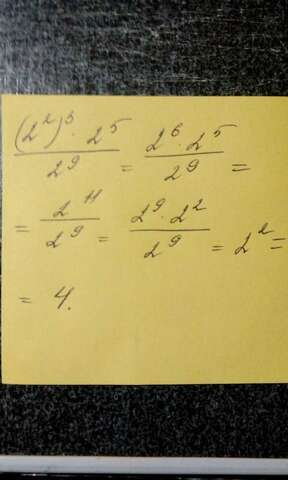 (2²)³ · 2⁵ / 2⁹ = 2⁶ · 2⁵ / 2⁹ =
= 2¹¹ / 2⁹ = 2⁹ · 2² / 2⁹ = 2² =
= 4.